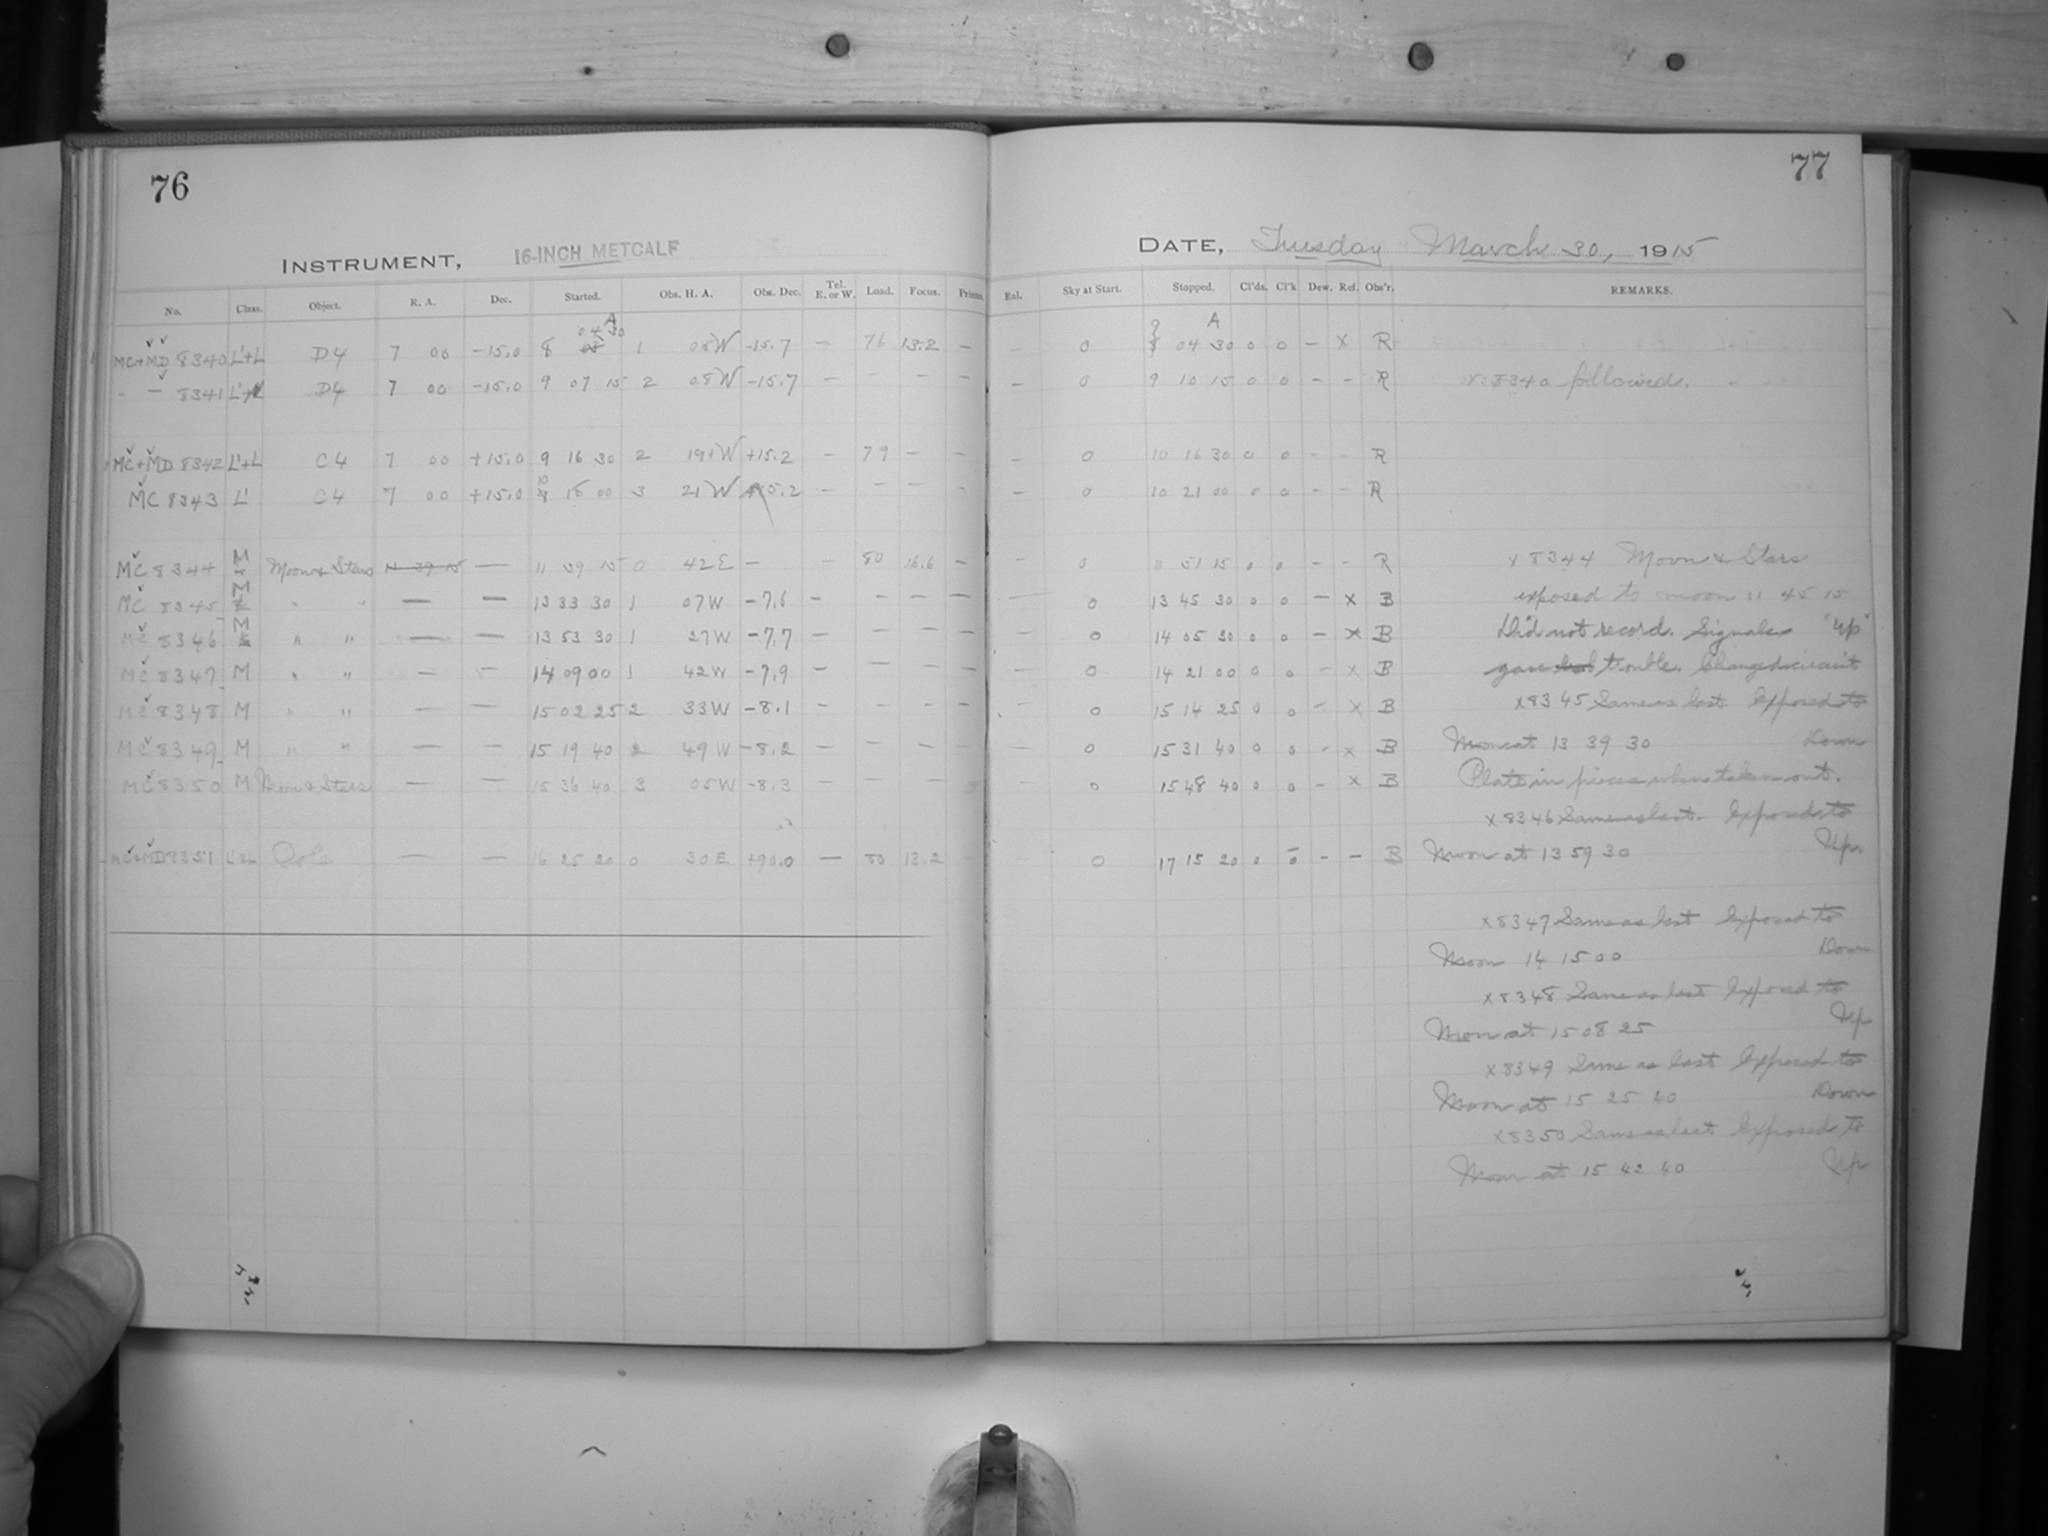 76
INSTRUMENT, 16-INCH METCALF
No. Class. Object. R. A. Dec. Started. Obs. H. A. Obs. Dec. Tel. E. or W. Load. Focus. Prisms.
04 30 A
MC+MD 8340 L'+L D4 7 00 -15.0 8 05 1 08 W -15.7 — 76 13.2 —
" — 8341 L'+L D4 7 00 -15.0 9 07 15 2 08 W -15.7 — — — —
MC+MD 8342 L'+L C4 7 00 +15.0 9 16 30 2 19+W +15.2 — 79 — —
MC 8343 L' C4 7 00 +15.0 10 18 00 3 21 W +15.2 — — — —
MC 8344 M Moon & Stars 11 39 15 — 11 39 15 0 42 E — — 80 16.6 —
MC 8345 M " " — — 13 33 30 1 07 W -7.6 — — — —
MC 8346 M " " — — 13 53 30 1 27 W -7.7 — — — —
MC 8347 M " " — — 14 09 00 1 42 W -7.9 — — — —
MC 8348 M " " — — 15 02 25 2 33 W -8.1 — — — —
MC 8349 M " " — — 15 19 40 2 49 W -8.2 — — — —
MC 8350 M Moon & Stars — — 15 36 40 3 05 W -8.3 — — — —
MC+MD 8351 L'+L Pole — — 16 25 20 0 30 E +90.0 — 80 13.2
77
DATE, Tuesday March 30, 1915
Eul. Sky at Start. Stopped. Cl'ds. Cl'k Dew. Ref. Obs'r. REMARKS.
9 A
0 8 04 30 0 0 — x R
— 0 9 10 15 0 0 — — R x 8340 followed.
— 0 10 16 30 0 0 - - R
— 0 10 21 00 0 0 — — R
— 0 11 51 15 0 0 — — R x 8344 Moon & Stars
— 0 13 45 30 0 0 — x B exposed to moon 11 45 15
— 0 14 05 30 0 0 — x B Did not record. Signals "Up"
— 0 14 21 00 0 0 — x B gave trouble. Changed circuit
— 0 15 14 25 0 0 — x B x8345 Same as last Exposed to
— 0 15 31 40 0 0 - x B Moon at 13 39 30 Down
— 0 15 48 40 0 0 — x B Plate in pieces when taken out.
x8346 Same as last. Exposed to
0 17 15 20 0 0 - — B Moon at 13 59 30 Up.
x8347 Same as last Exposed to
Moon 14 15 00 Down
x8348 Same as last Exposed to
Moon at 15 08 25 Up
x8349 Same as last Exposed to
Moon at 15 25 40 Down
x8350 Same as last Exposed to
Moon at 15 42 40 Up